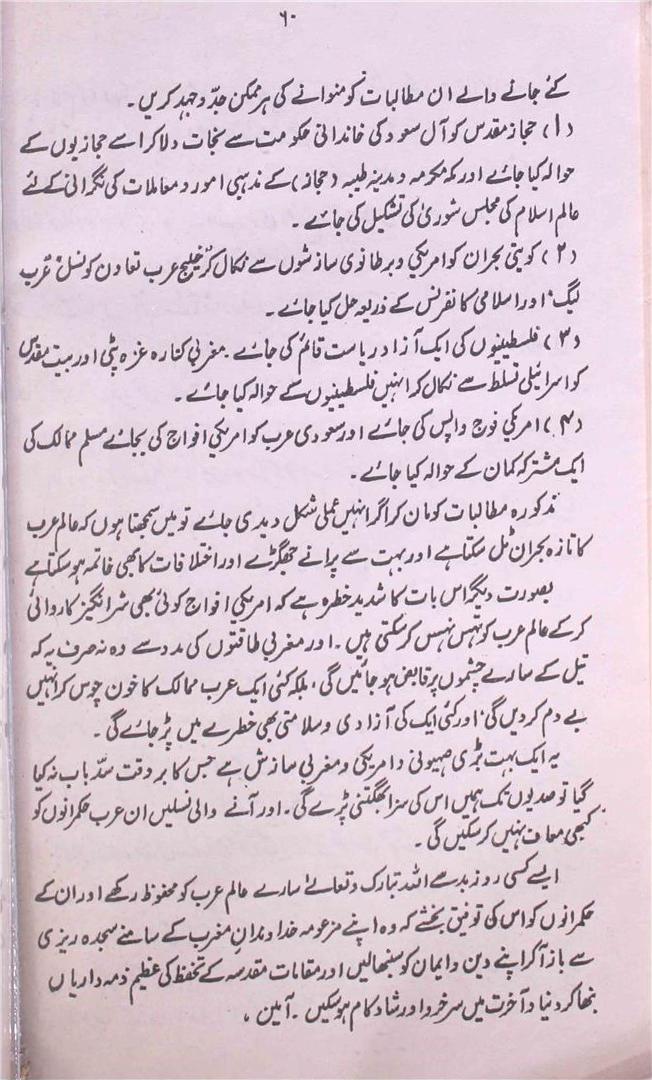 ۶۰
کئے جانے والے ان مطالبات کو منوانے کی ہر ممکن جدّ و جہد کریں۔
(۱) حجاز مقدس کو آل سعود کی خاندانی حکومت سے نجات دلا کر اسے حجازیوں کے
حوالہ کیا جائے اور مکہ مکرمہ و مدینہ طیبہ (حجاز) کے مذہبی امور و معاملات کی نگرانی کے لئے
عالم اسلام کی مجلس شوریٰ کی تشکیل کی جائے۔
(۲) کویتی بحران کو امریکی و برطانوی سازشوں سے نکال کر خلیج عرب تعاون کونسل، عرب
لیگ، اور اسلامی کانفرنس کے ذریعہ حل کیا جائے۔
(۳) فلسطینیوں کی ایک آزاد ریاست قائم کی جائے۔ مغربی کنارہ غزہ پٹی اور بیت مقدس
کو اسرائیلی تسلط سے نکال کر انہیں فلسطینیوں کے حوالہ کیا جائے۔
(۴) امریکی فوج واپس کی جائے اور سعودی عرب کو امریکی افواج کی بجائے مسلم ممالک کی
ایک مشترکہ کمان کے حوالہ کیا جائے۔
مذکورہ مطالبات کو مان کر اگر انہیں عملی شکل دیدی جائے تو میں سمجھتا ہوں کہ عالم عرب
کا تازہ بحران ٹل سکتا ہے اور بہت سے پرانے جھگڑے اور اختلافات کا بھی خاتمہ ہو سکتا ہے
بصورت دیگر اس بات کا شدید خطرہ ہے کہ امریکی افواج کوئی بھی شر انگیز کاروائی
کر کے عالم عرب کو تہس نہس کر سکتی ہیں۔ اور مغربی طاقتوں کی مدد سے وہ نہ صرف یہ کہ
تیل کے سارے چشموں پر قابض ہو جائیں گی، بلکہ کئی ایک عرب ممالک کا خون چوس کر انہیں
بے دم کر دیں گی، اور کئی ایک کی آزادی و سلامتی بھی خطرے میں پڑ جائے گی۔
یہ ایک بہت بڑی صیہونی و امریکی و مغربی سازش ہے جس کا بر وقت سدّ باب نہ کیا
گیا تو صدیوں تک ہمیں اس کی سزا بھگتنی پڑے گی۔ اور آنے والی نسلیں ان عرب حکمرانوں کو
کبھی معاف نہیں کر سکیں گی۔
ایسے کسی روز بد سے اللہ تبارک و تعالےٰ سارے عالم عرب کو محفوظ رکھے اور ان کے
حکمرانوں کو اس کی توفیق بخشے کہ وہ اپنے مزعومہ خداوندان مغرب کے سامنے سجدہ ریزی
سے باز آ کر اپنے دین و ایمان کو سنبھالیں اور مقامات مقدسہ کے تحفظ کی عظیم ذمہ داریاں
نبھا کر دنیا و آخرت میں سرخرو اور شاد کام ہو سکیں۔ آمین،